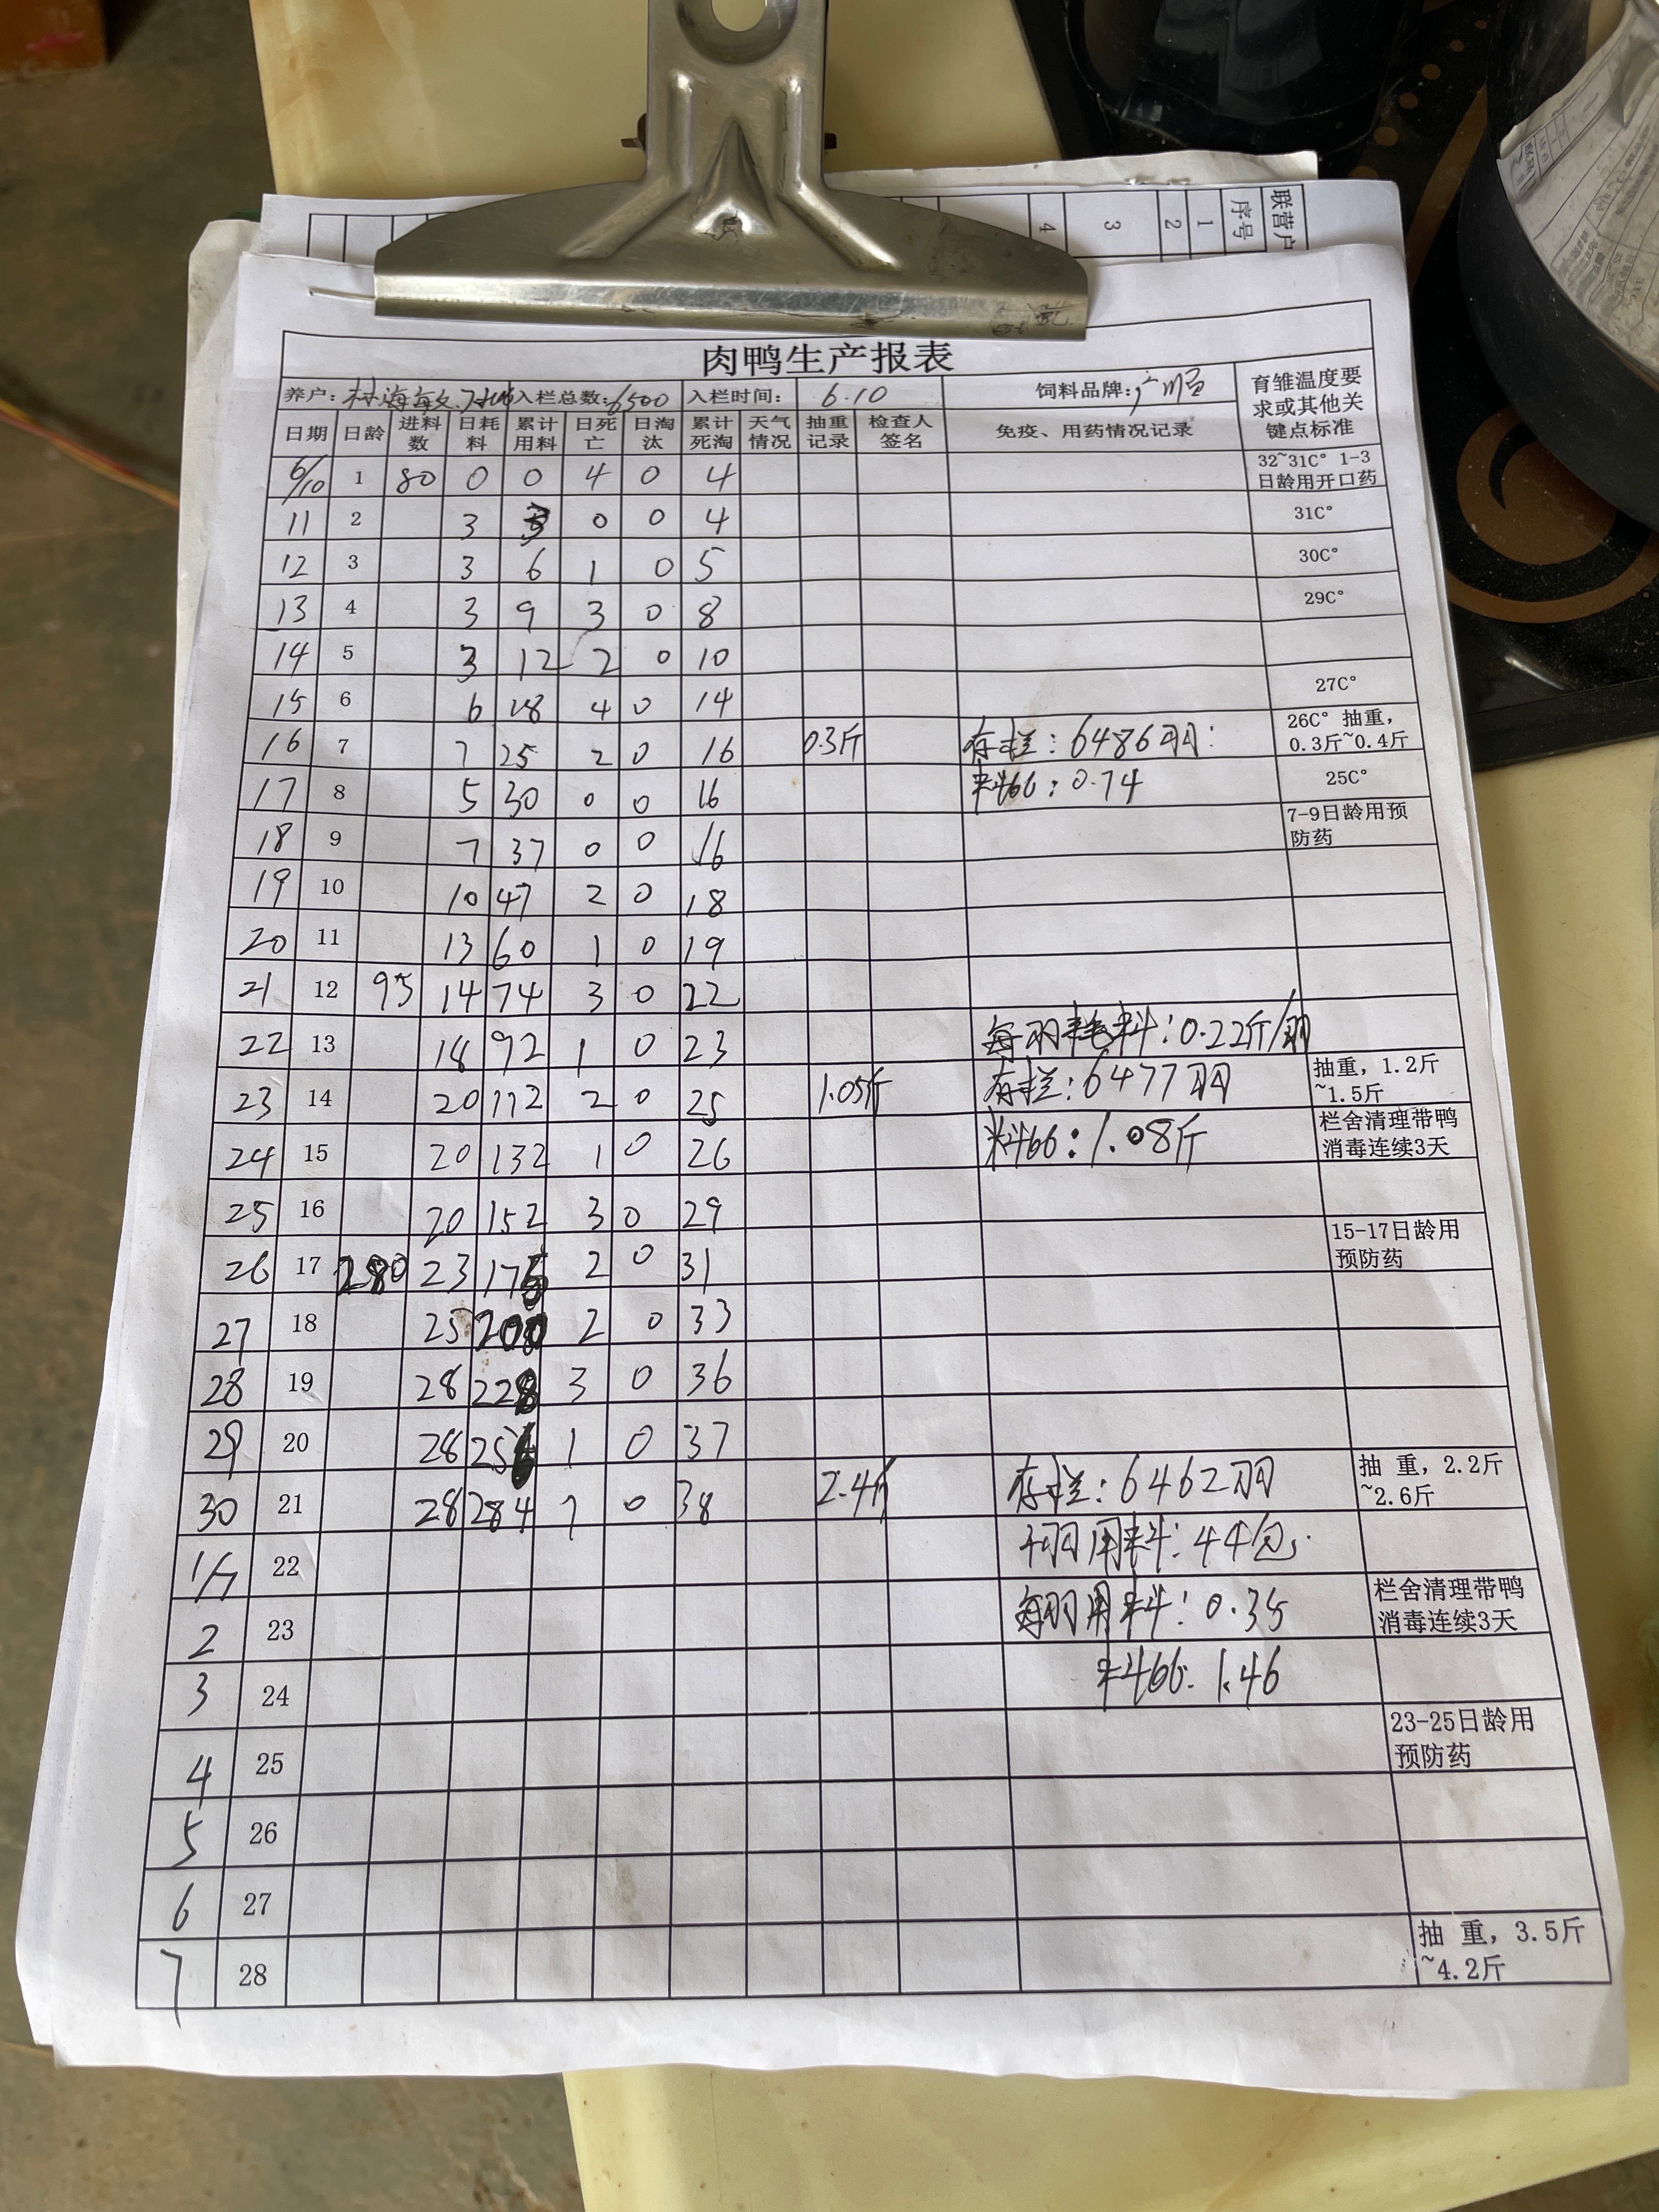 联营户
序号
1
2
3
4
肉鸭生产报表
养户: 入栏总数:6500 入栏时间: 6.10 饲料品牌: 育雏温度要求或其他关键点标准
日期 日龄 进料数 日耗料 累计用料 日死亡 日淘汰 累计死淘 天气情况 抽重记录 检查人签名 免疫、用药情况记录
6/10 1 80 0 0 4 0 4 32~31C° 1-3日龄用开口药
11 2 3 3 0 0 4 31C°
12 3 3 6 1 0 5 30C°
13 4 3 9 3 0 8 29C°
14 5 3 12 2 0 10
15 6 6 18 4 0 14 27C°
16 7 7 25 2 0 16 0.3斤 存栏:6486羽: 26C° 抽重,0.3斤~0.4斤
17 8 5 30 0 0 16 料比:0.74 25C°
18 9 7 37 0 0 16 7-9日龄用预防药
19 10 10 47 2 0 18
20 11 13 60 1 0 19
21 12 95 14 74 3 0 22
22 13 18 92 1 0 23 每羽耗料:0.22斤/羽
23 14 20 112 2 0 25 1.05斤 存栏:6477羽 抽重,1.2斤~1.5斤
24 15 20 132 1 0 26 料比:1.08斤 栏舍清理带鸭消毒连续3天
25 16 20 152 3 0 29
26 17 280 23 175 2 0 31 15-17日龄用预防药
27 18 25 200 2 0 33
28 19 28 228 3 0 36
29 20 28 256 1 0 37
30 21 28 284 1 0 38 2.4斤 存栏:6462羽 抽 重,2.2斤~2.6斤
1/7 22 千羽用料:44包.
2 23 每羽用料:0.35 栏舍清理带鸭消毒连续3天
3 24 料比:1.46
4 25 23-25日龄用预防药
5 26
6 27
7 28 抽 重,3.5斤~4.2斤